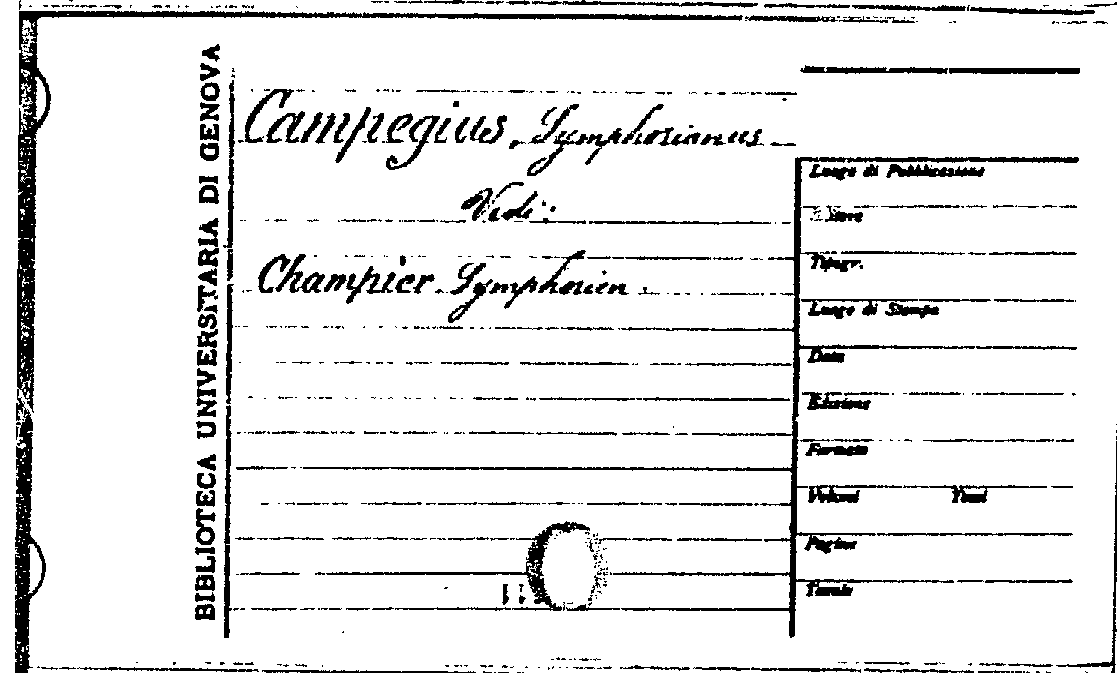 BIBLIOTECA UNIVERSITARIA DI GENOVA
Campegius, Symphorianus
Vedi:
Champier Symphorien.
Luogo di Pubblicazione
Tipogr.
Luogo di Stampa
Data
Edizione
Formato
Volumi Tomi
Pagine
Tavole